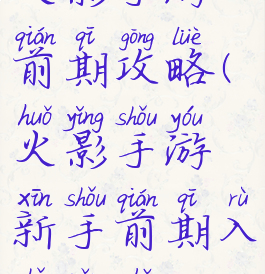 qián qī gōng lüè
前期攻略(
huǒ yǐng shǒu yóu
火影手游
xīn shǒu qián qī rù
新手前期入